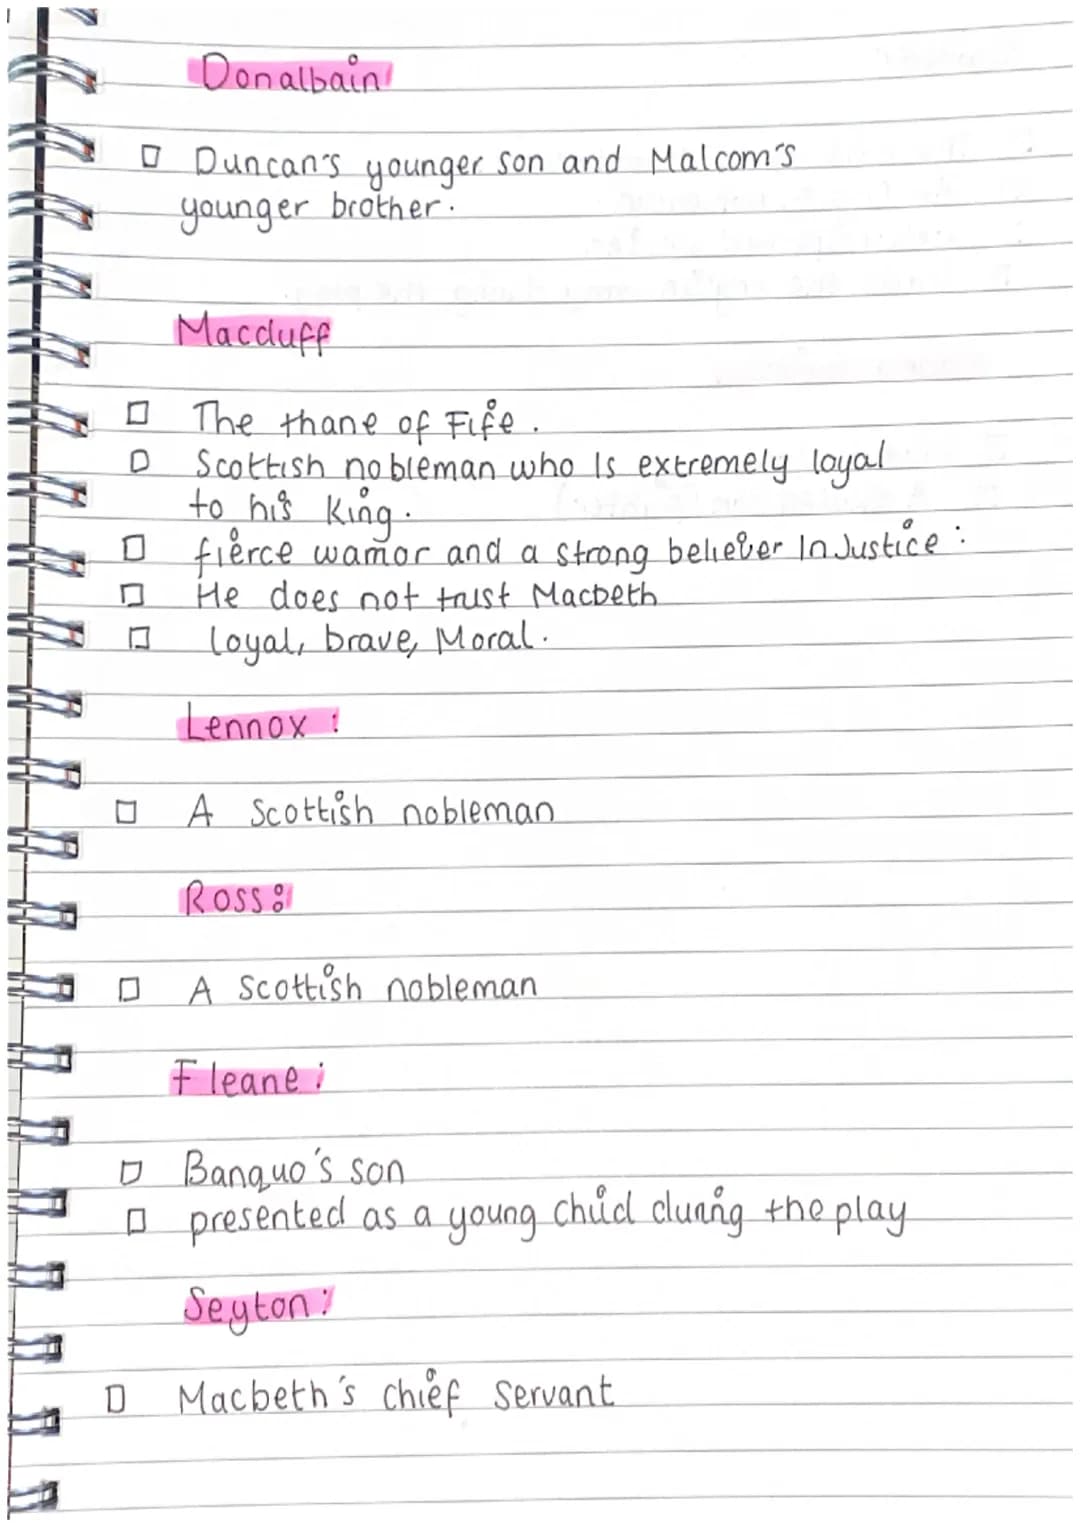 Donalbain
Duncan's younger son and Malcom's
younger brother.
Macduff
The thane of Fife.
Scottish nobleman who Is extremely loyal
to his King.
fierce warrior and a strong believer In Justice :
He does not trust Macbeth
loyal, brave, Moral.
Lennox :
A Scottish nobleman
Ross:
A Scottish nobleman
Fleane :
Banquo's son
presented as a young child during the play
Seyton:
Macbeth's chief servant